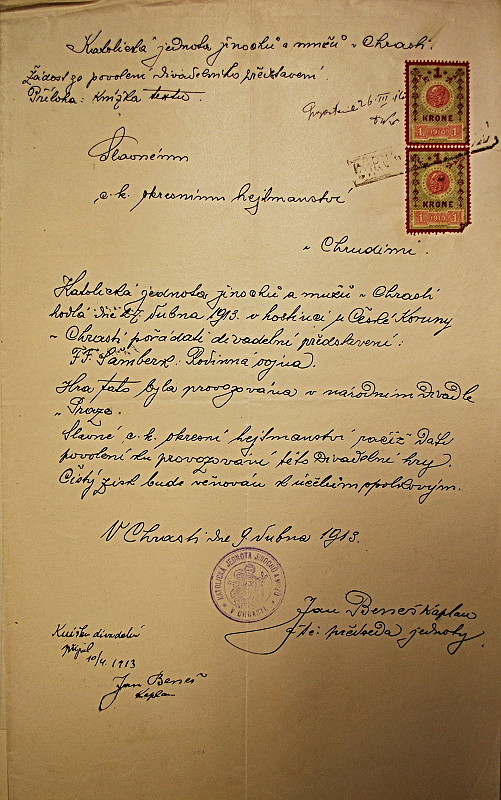 Katolická jednota jinochů a mužů v Chrasti.
Žádost za povolení divadelního představení.
Příloha: knížka textu
26. III.
1
KRONE
1 1910 1
1
KRONE
1 1910 1
Slavnému
c. k. okresnímu hejtmanství
v Chrudimi.
Katolická jednota jinochů a mužů v Chrasti
hodlá dne 27. dubna 1913. v hostinci u České Koruny
v Chrasti pořádati divadelní představení:
F. F. Šamberk: Rodinná vojna.
Hra tato byla provozována v národním Divadle
v Praze.
Slavné c. k. okresní hejtmanství račiž dáti
povolení ku provozování této Divadelní hry.
Čistý zisk bude věnován k účelům spolkovým.
V Chrasti dne 9. dubna 1913.
KATOLICKÁ JEDNOTA JINOCHŮ A MUŽŮ
V CHRASTI
Jan Beneš kaplan
předseda jednoty.
Knížku divadelní
přijal
10/4. 1913
Jan Beneš
kaplan